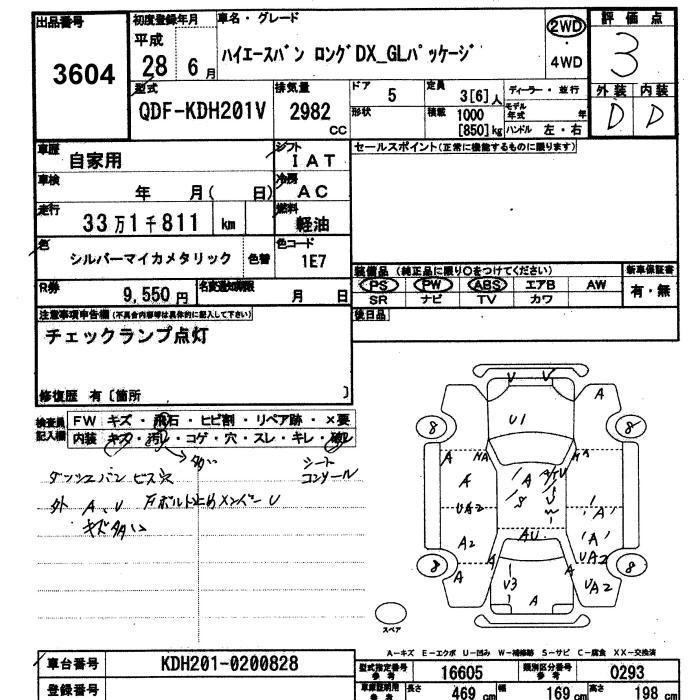 出品番号 初度登録年月 車名・グレード 2WD 評価点
3604 平成 28 6月 ハイエースバン ロングDX_GLパッケージ ・ 4WD 3
型式 排気量 ドア 定員 ディーラー・並行 外装 内装
QDF-KDH201V 2982 CC 5 3[6]人 モデル年式 年 D D
形状 積載 1000 [850]kg ハンドル 左・右
車歴 自家用 シフト IAT セールスポイント(正常に機能するものに限ります)
車検 年 月( 日) 冷房 AC
走行 33万1千811 km 燃料 軽油
色 シルバーマイカメタリック 色替 色コード 1E7
装備品 (純正品に限り○をつけてください) 新車保証書
R券 9,550円 名変通知期限 月 日 PS PW ABS エアB AW 有・無
SR ナビ TV カワ
注意事項申告欄(不具合内容等は具体的に記入して下さい) 後日品
チェックランプ点灯
修復歴 有[箇所 ]
検査員記入欄 FW キズ・飛石・ヒビ割・リペア跡・×要
内装 キズ・汚レ・コゲ・穴・スレ・キレ・破レ
シート
コンソール
ダッシュパン ビス穴
外 A、U
U
V V
A
U1
8 8
A
A
UA2
A2
A
AU
A
UA2
UA2
8 8
A
V3
A
スペア
A-キズ E-エクボ U-凹み W-補修跡 S-サビ C-腐食 XX-交換済
車台番号 KDH201-0200828 型式指定番号 参考 16605 類別区分番号 参考 0293
登録番号 車庫証明用 参考 長さ 469 cm 幅 169 cm 高さ 198 cm